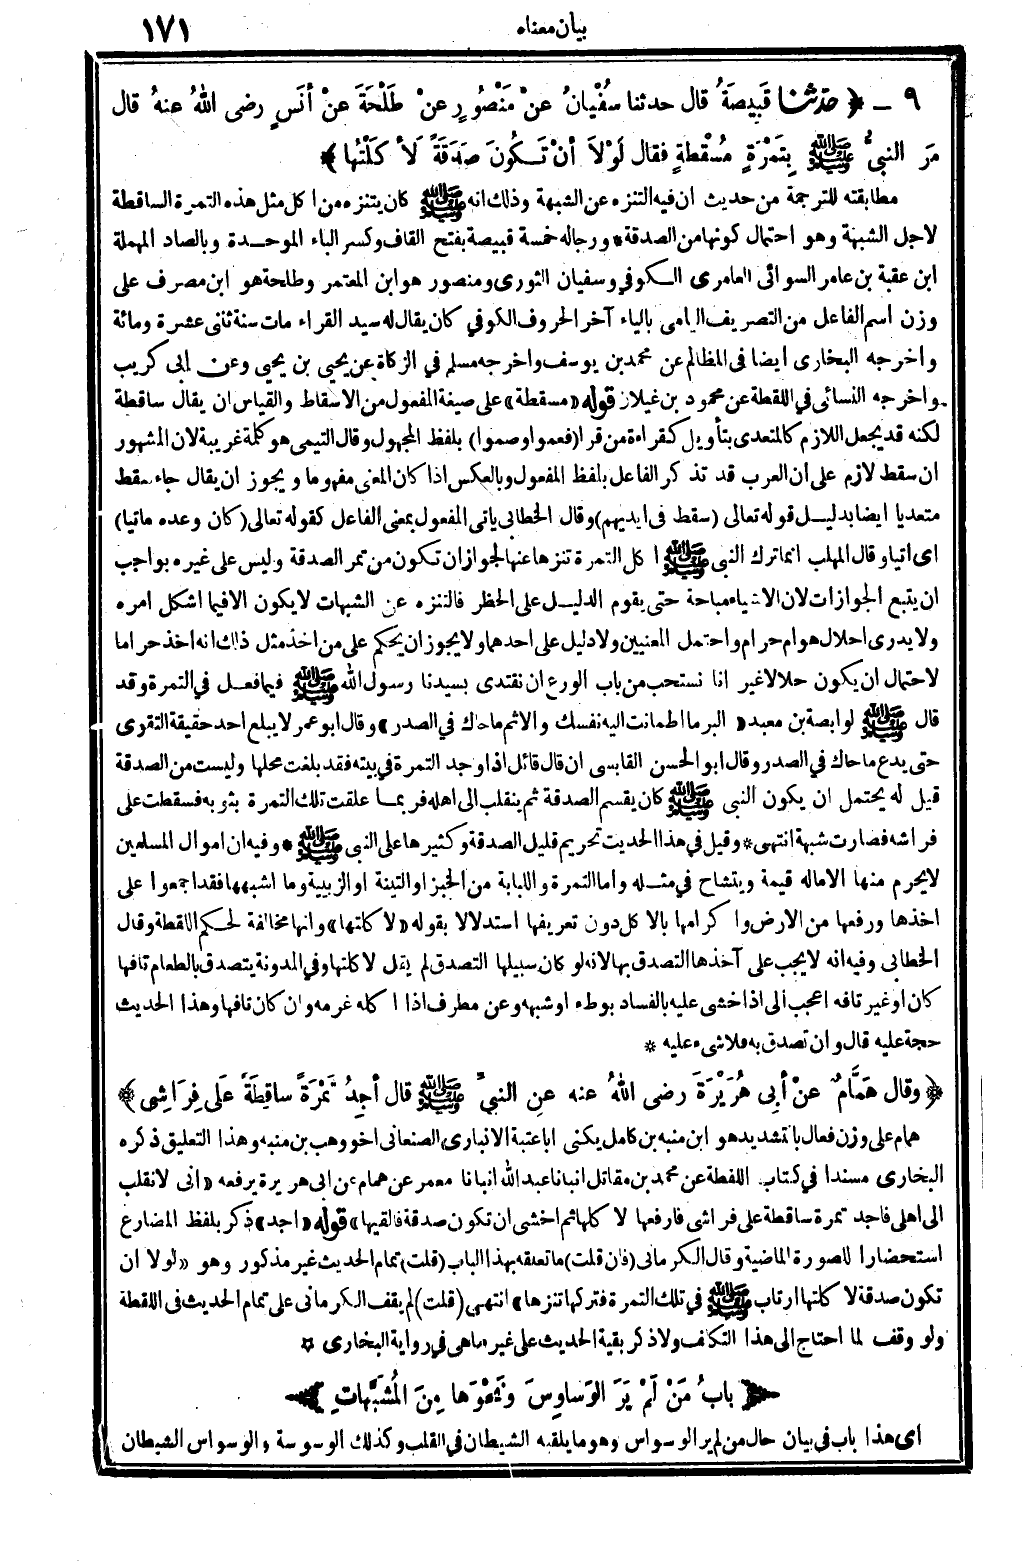 بيان معناه ١٧١
٩ ــ ﴿ حدثنا قَبِيصَةُ قال حدثنا سُفْيانُ عنْ مَنْصُورٍ عنْ طَلْحَةَ عنْ أنَسٍ رضى اللهُ عنهُ قال
مَرَ النبىُّ ﷺ بِتَمْرَةٍ مُسْقَطةٍ فقال لَوْلاَ أنْ تَـكُونَ صَدَقَةً لَأَ كَلْتُها ﴾
مطابقته للترجمة من حديث ان فيه التنزه عن الشبهة وذلك انه ﷺ كان يتنزه من اكل مثل هذه التمرة الساقطة
لاجل الشبهة وهو احتمال كونها من الصدقة * ورجاله خمسة قبيصة بفتح القاف وكسر الباء الموحدة وبالصاد المهملة
ابن عقبة بن عامر السوائى العامرى الكوفي وسفيان الثورى ومنصور هو ابن المعتمر وطلحة هو ابن مصرف على
وزن اسم الفاعل من التصريف اليامى بالياء آخر الحروف الكوفي كان يقال له سيد القراء مات سنة ثنتى عشرة ومائة
واخرجه البخارى ايضا فى المظالم عن محمد بن يوسف واخرجه مسلم في الزكاة عن يحيى بن يحيى وعن ابى كريب
واخرجه النسائى في اللقطة عن محمود بن غيلان قوله «مسقطة» على صيغة المفعول من الاسقاط والقياس ان يقال ساقطة
لكنه قد يجعل اللازم كالمتعدى بتأويل كقراءة من قرا (فعموا وصموا) بلفظ المجهول وقال التيمى هو كلمة غريبة لان المشهور
ان سقط لازم على ان العرب قد تذكر الفاعل بلفظ المفعول وبالعكس اذا كان المعنى مفهوما ويجوز ان يقال جاء سقط
متعديا ايضا بدليل قوله تعالى (سقط فى ايديهم) وقال الخطابى ياتى المفعول بمعنى الفاعل كقوله تعالى (كان وعده ماتيا)
اى اتيا وقال المهلب انما ترك النبى ﷺ اكل التمرة تنزها عنها لجواز ان تكون من تمر الصدقة وليس على غيره بواجب
ان يتبع الجوازات لان الاشياء مباحة حتى يقوم الدليل على الحظر فالتنزه عن الشبهات لا يكون الا فيما اشكل امره
ولا يدرى احلال هو ام حرام واحتمل المعنيين ولا دليل على احدهما ولا يجوز ان يحكم على من اخذ مثل ذلك انه اخذ حراما
لاحتمال ان يكون حلالا غير انا نستحب من باب الورع ان نقتدى بسيدنا رسول الله ﷺ فيما فعل في التمرة وقد
قال ﷺ لوابصة بن معبد «البر ما اطمانت اليه نفسك والاثم ما حاك في الصدر» وقال ابو عمر لا يبلغ احد حقيقة التقوى
حتى يدع ما حاك في الصدر وقال ابو الحسن القابسى ان قال قائل اذا وجد التمرة في بيته فقد بلغت محلها وليست من الصدقة
قيل له يحتمل ان يكون النبى ﷺ كان يقسم الصدقة ثم ينقلب الى اهله فربما علقت تلك التمرة بثوبه فسقطت على
فراشه فصارت شبهة انتهى * وقيل في هذا الحديث تحريم قليل الصدقة وكثيرها على النبى ﷺ * وفيه ان اموال المسلمين
لا يحرم منها الا ماله قيمة ويتشاح في مثله واما التمرة واللبابة من الخبز او التينة او الزبيبة وما اشبهها فقد اجمعوا على
اخذها ورفعها من الارض واكرامها بالاكل دون تعريفها استدلالا بقوله «لاكلتها» وانها مخالفة لحكم اللقطة وقال
الخطابى وفيه انه لا يجب على آخذها التصدق بها لانه لو كان سبيلها التصدق لم يقل لاكلتها وفي المدونة يتصدق بالطعام تافها
كان او غير تافه اعجب الى اذا خشى عليه بالفساد بوطء او شبهه وعن مطرف اذا اكله غرمه وان كان تافها وهذا الحديث
حجة عليه قال وان تصدق به فلا شىء عليه *
﴿ وقال هَمَّامٌ عنْ أبِى هُرَيْرَةَ رضى اللهُ عنه عنِ النبىِّ ﷺ قال أجِدُ تَمْرَةً ساقِطَةً عَلَى فِرَاشِى ﴾
همام على وزن فعال بالتشديد هو ابن منبه بن كامل يكنى ابا عتبة الانبارى الصنعانى اخو وهب بن منبه وهذا التعليق ذكره
البخارى مسندا في كتاب اللقطة عن محمد بن مقاتل انبانا عبد الله انبانا معمر عن همام عن ابى هريرة يرفعه «انى لانقلب
الى اهلى فاجد تمرة ساقطة على فراشى فارفعها لاكلها ثم اخشى ان تكون صدقة فالقيها» قوله «اجد» ذكر بلفظ المضارع
استحضارا للصورة الماضية وقال الكرمانى (فان قلت) ما تعلقه بهذا الباب (قلت) تمام الحديث غير مذكور وهو «لولا ان
تكون صدقة لاكلتها ارتاب ﷺ في تلك التمرة فتركها تنزها» انتهى (قلت) لم يقف الكرمانى على تمام الحديث فى اللقطة
ولو وقف لما احتاج الى هذا التكلف ولا ذكر بقية الحديث على غير ما هى في رواية البخارى ¤
﴿ بابُ مَنْ لَمْ يَرَ الوَساوِسَ ونَحْوَها مِنَ المُشَبَّهَاتِ ﴾
اى هذا باب فى بيان حال من لم ير الوسواس وهو ما يلقيه الشيطان في القلب وكذلك الوسوسة والوسواس الشيطان